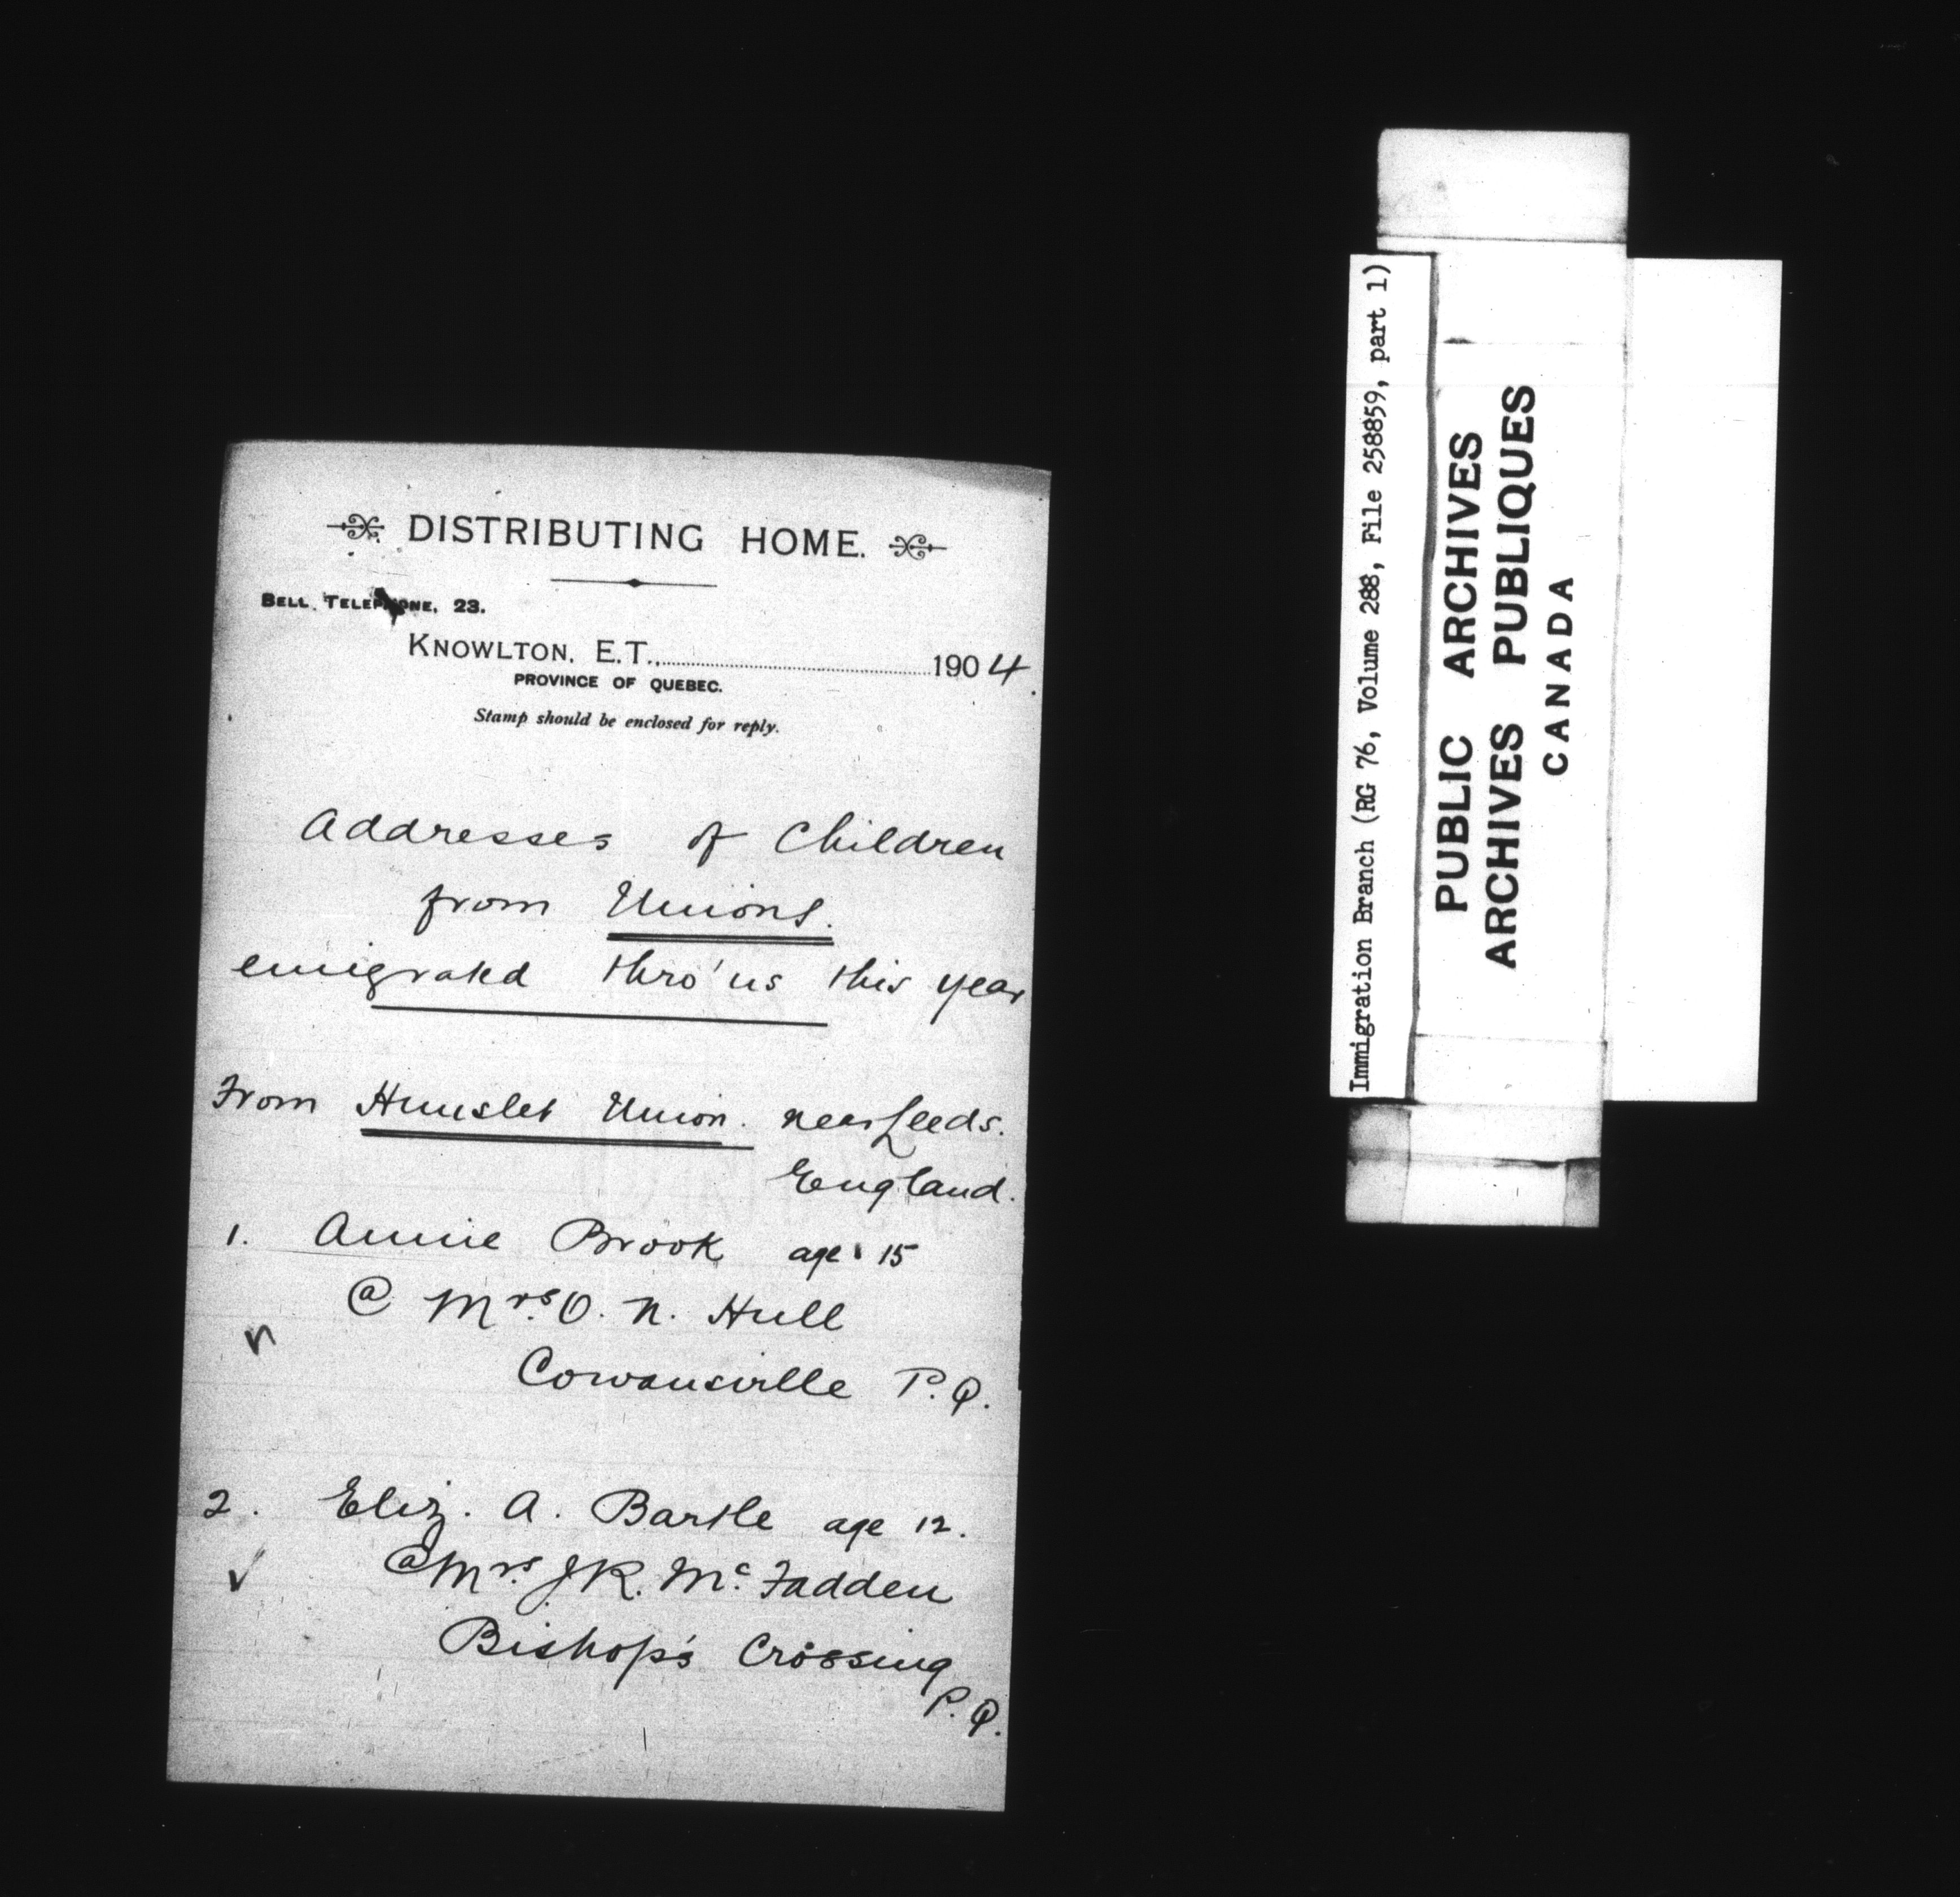 DISTRIBUTING HOME.
BELL TELEPHONE, 23.
KNOWLTON, E.T., 1904.
PROVINCE OF QUEBEC.
Stamp should be enclosed for reply.
Addresses of Children
from Unions.
emigrated thro' us this year
From Hunslet Union. near Leeds.
England.
1. Annie Brook age 15
@ Mrs. O. N. Hull
Cowansville P.Q.
2. Eliz. A. Bartle age 12.
@ Mrs. J.R. Mc Fadden
Bishop's Crossing
P.Q.
Immigration Branch (RG 76, Volume 288, File 258859, part 1)
PUBLIC ARCHIVES
ARCHIVES PUBLIQUES
CANADA